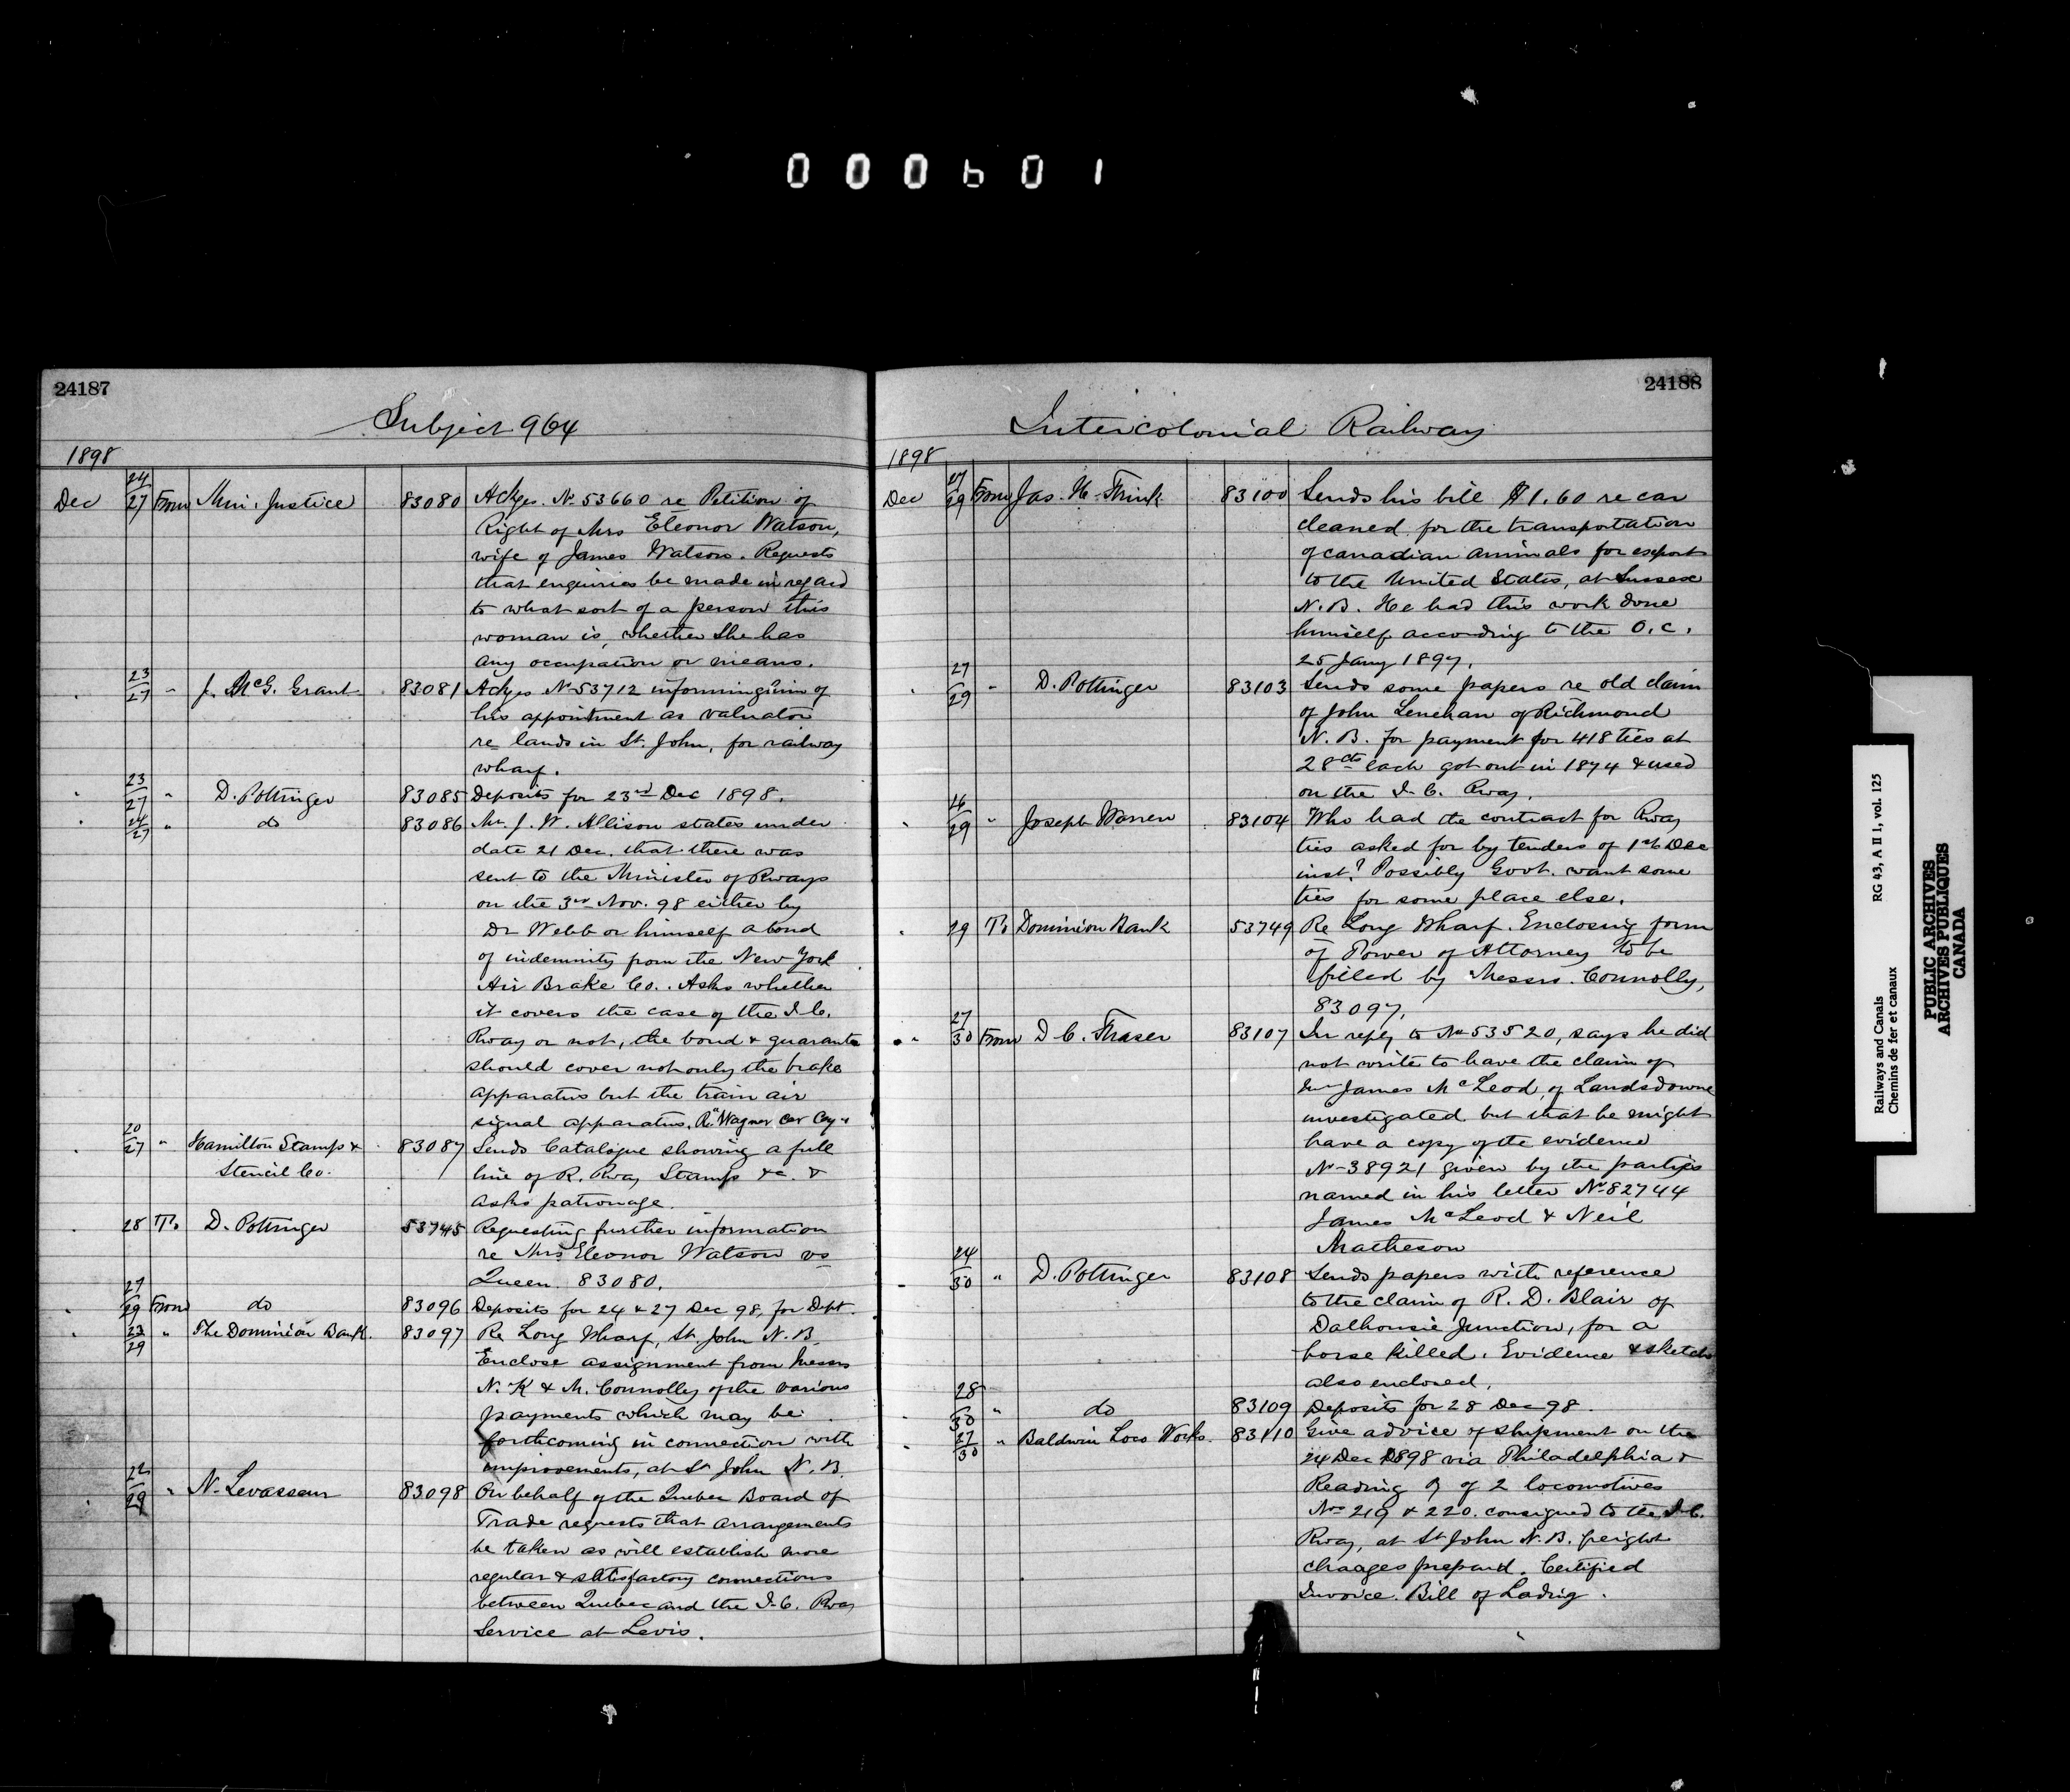 000601
24187
Subject 964
1898
Dec 24/27 From Min. Justice 83080 Ackges. No 53660 re Petition of
Right of Mrs Eleonor Watson,
wife of James Watson. Requests
that enquiries be made in regard
to what sort of a person this
woman is, whether she has
any occupation or means.
" 23/27 " J. McG. Grant 83081 Ackges No 53712 informing him of
his appointment as valuator
re lands in St. John, for railway
wharf.
" 23/27 " D. Pottinger 83085 Deposits for 23rd Dec 1898.
" 24/27 " do 83086 Mr. J. W. Allison states under
date 21 Dec. that there was
sent to the Minister of Rways
on the 3rd Nov. 98 either by
Dr Webb or himself a bond
of indemnity from the New York
Air Brake Co. Asks whether
it covers the case of the I.C.
Rway or not, the bond & guarantee
should cover not only the brake
apparatus but the train air
signal apparatus. Re "Wagner Car Coy."
" 20/27 " Hamilton Stamp & 83087 Sends Catalogue showing a full
Stencil Co. line of R. Rway Stamps &c. &
asks patronage.
" 28 To D. Pottinger 53745 Requesting further information
re Mrs Eleonor Watson vs
Queen. 83080.
" 27/29 From do 83096 Deposits for 24 & 27 Dec 98, for Dept.
" 23/29 " The Dominion Bank. 83097 Re Long Wharf, St. John N. B.
Enclose assignment from Messrs
N. K & M. Connolly of the various
payments which may be
forthcoming in connection with
improvements, at St John N. B.
" 22/29 " N. Levasseur 83098 On behalf of the Quebec Board of
Trade requests that arrangements
be taken as will establish more
regular & satisfactory connections
between Quebec and the I.C. Rway
Service at Levis.
24188
Intercolonial Railway
1898
Dec 27/29 From Jas. H. Frink 83100 Sends his bill $1.60 re car
cleaned for the transportation
of canadian animals for export
to the United States, at Sussex
N.B. He had this work done
himself according to the O.C.
25 Jany 1897.
" 27/29 " D. Pottinger 83103 Sends some papers re old claim
of John Lenehan of Richmond
N. B. for payment for 418 ties at
28cts each got out in 1874 & used
on the I. C. Rway.
" 16/29 " Joseph Warren 83104 Who had the contract for Rway
ties asked for by tenders of 1st Dec
inst? Possibly Govt. want some
ties for some place else.
" 29 To Dominion Bank 53749 Re Long Wharf. Enclosing form
of Power of Attorney to be
filled by Messrs. Connolly,
83097.
" 27/30 From D C. Fraser 83107 In reply to No 53520, says he did
not write to have the claim of
Mr James McLeod, of Landsdowne
investigated but that he might
have a copy of the evidence
No 38921 given by the parties
named in his letter No 82744
James McLeod & Neil
Matheson
" 24/30 " D. Pottinger 83108 Sends papers with reference
to the claim of R. D. Blair of
Dalhousie Junction, for a
horse killed. Evidence & sketch
also enclosed.
" 28/30 " do 83109 Deposits for 28 Dec 98.
" 27/30 " Baldwin Loco Works. 83110 Give advice of shipment on the
24 Dec 1898 via Philadelphia &
Reading Ry of 2 locomotives
Nos 219 & 220. consigned to the I.C.
Rway, at St John N. B. freight
chaages prepaid. Certified
Invoice. Bill of Ladig.
Railways and Canals RG 43, A II 1, vol. 125
Chemins de fer et canaux
PUBLIC ARCHIVES
ARCHIVES PUBLIQUES
CANADA